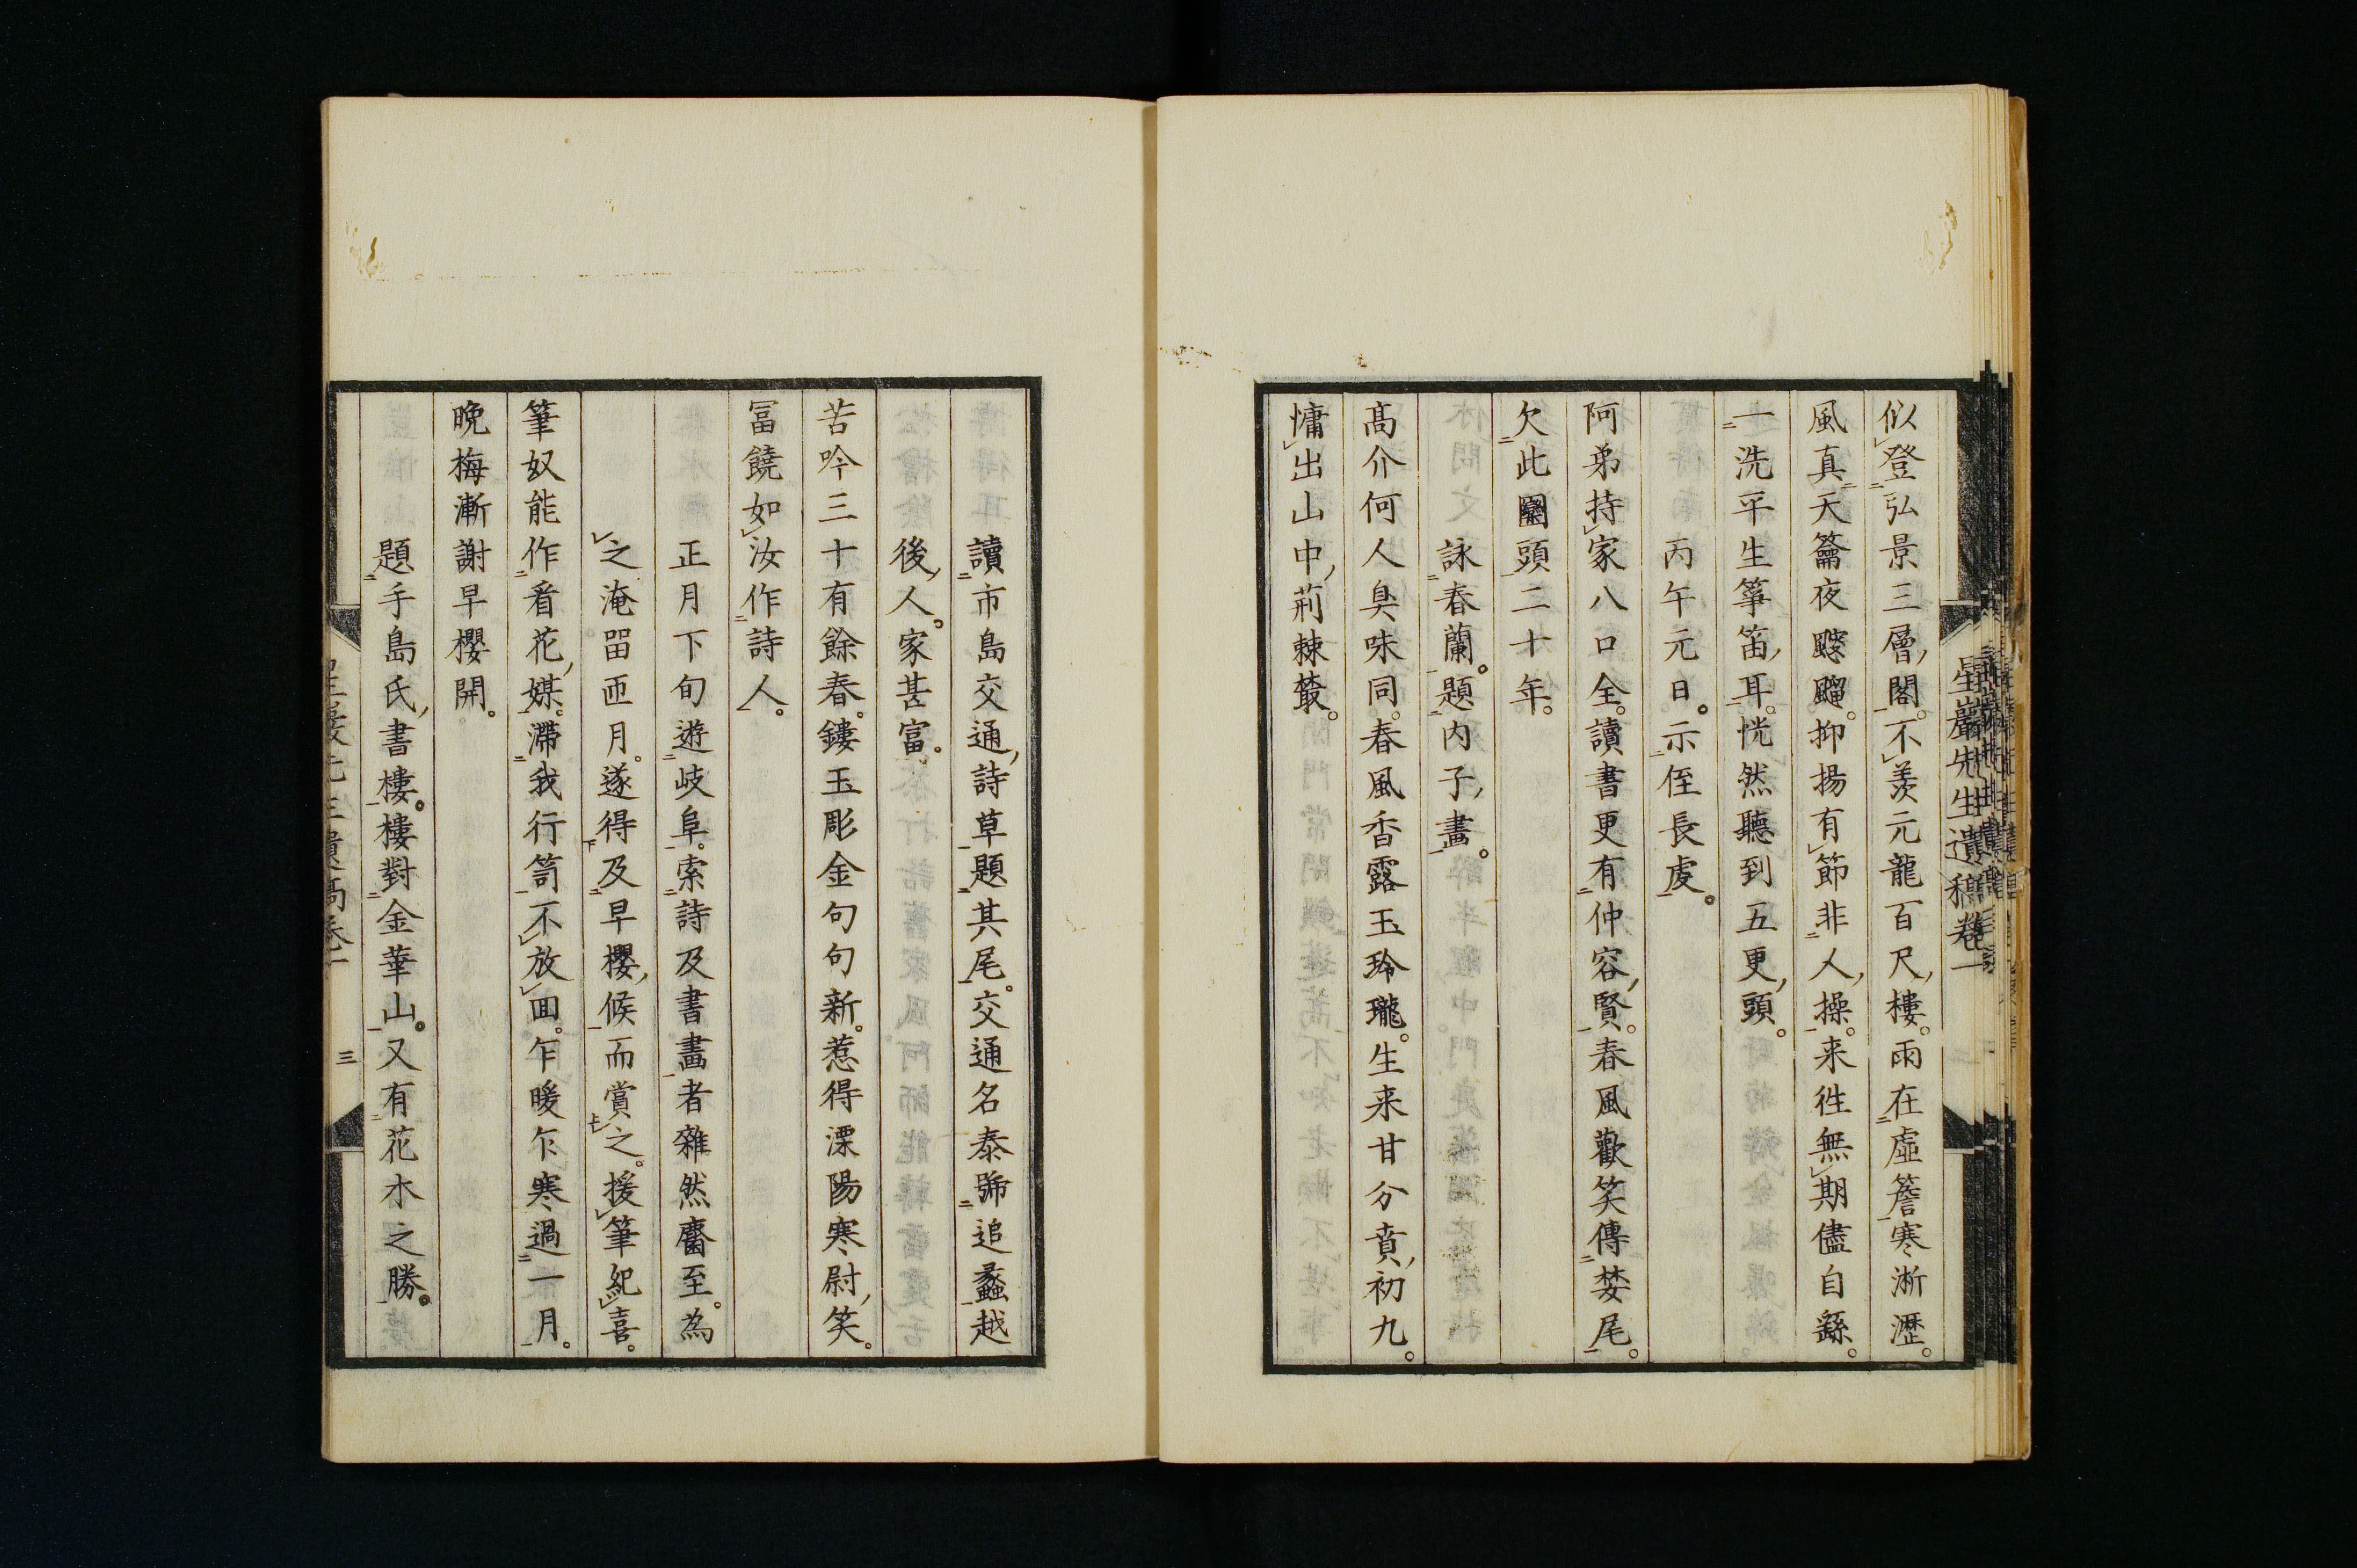 似登弘景三層閣。不羨元龍百尺樓。雨在虛簷寒淅瀝。
風真天籥夜飂飀。抑揚有節非人操。来徃無期儘自繇。
一洗平生箏笛耳。恍然聽到五更頭。
丙午元日。示侄長虔。
阿弟持家八口全。讀書更有仲容賢。春風歡笑傳婪尾。
欠此團頭二十年。
詠春蘭。題内子畫。
髙介何人臭味同。春風香露玉玲瓏。生来甘分賁初九。
慵出山中荊棘叢。
星巖先生遺稿卷一
讀市島交通詩草題其尾。交通名泰號追蠡越
後人。家甚富。
苦吟三十有餘春。鏤玉彫金句句新。惹得溧陽寒尉笑。
冨饒如汝作詩人。
正月下旬遊岐阜。索詩及書畫者雜然麕至。為
之淹畱匝月。遂得及早櫻候而賞之。援筆紀喜。
筆奴能作看花媒。滯我行笴不放囬。乍暖乍寒過一月。
晚梅漸謝早櫻開。
題手島氏書樓。樓對金華山。又有花木之勝。
三